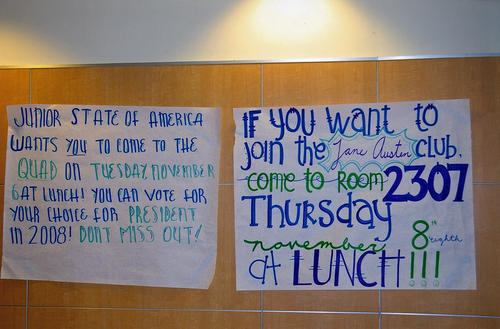 JUNIOR STATE OF AMERICA
WANTS YOU TO COME TO THE
QUAD ON TUESDAY, NOVEMBER
6 AT LUNCH! YOU CAN VOTE FOR
YOUR CHOICE FOR PRESIDENT
IN 2008! DON'T MISS OUT!
IF YOU WANT TO
JOIN the Jane Austen CLUB,
come to ROOM 2307
THURSDAY
november 8th eighth
at LUNCH!!!